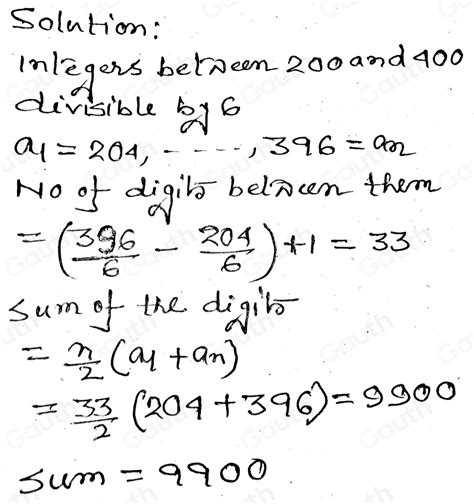 Solution:
Integers between 200 and 400
divisible by 6
a1 = 204, - - - - -, 396 = an
No of digits between them
= (396/6 - 204/6) + 1 = 33
Sum of the digits
= n/2 (a1 + an)
= 33/2 (204 + 396) = 9900
Sum = 9900